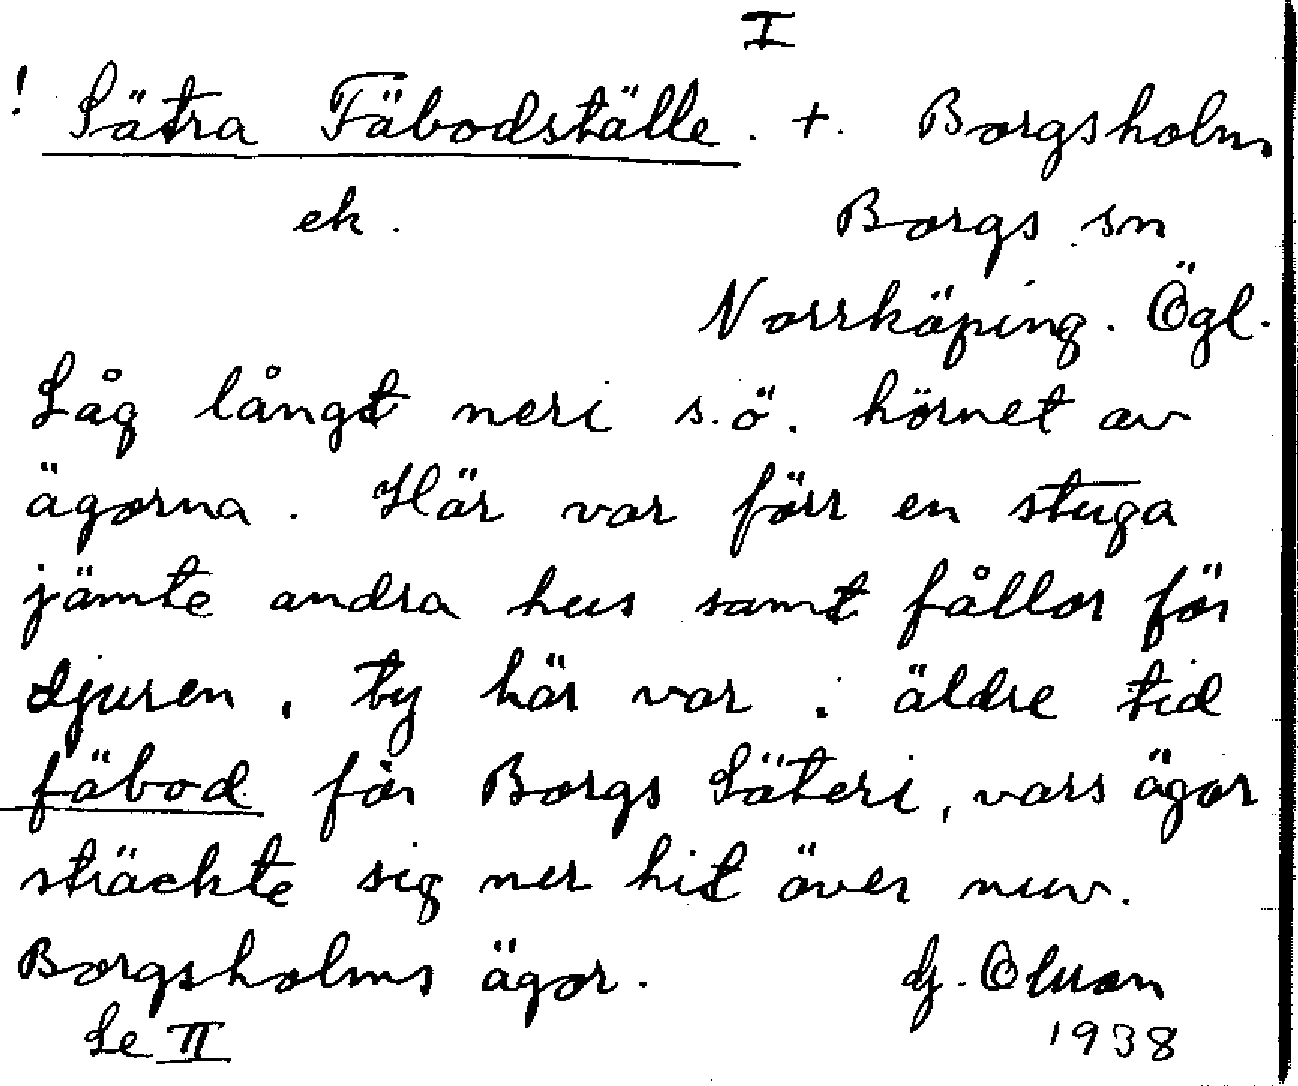 I
! Sätra Fäbodställe. +. Borgsholm
ek. Borgs sn
Norrköping. Ögl.
Låg långt neri s.ö. hörnet av
ägorna. Här var förr en stuga
jämte andra hus samt fållor för
djuren, ty här var i äldre tid
fäbod för Borgs Säteri, vars ägor
sträckte sig ner hit över nuv.
Borgsholms ägor. G. Olsson
Se II 1938